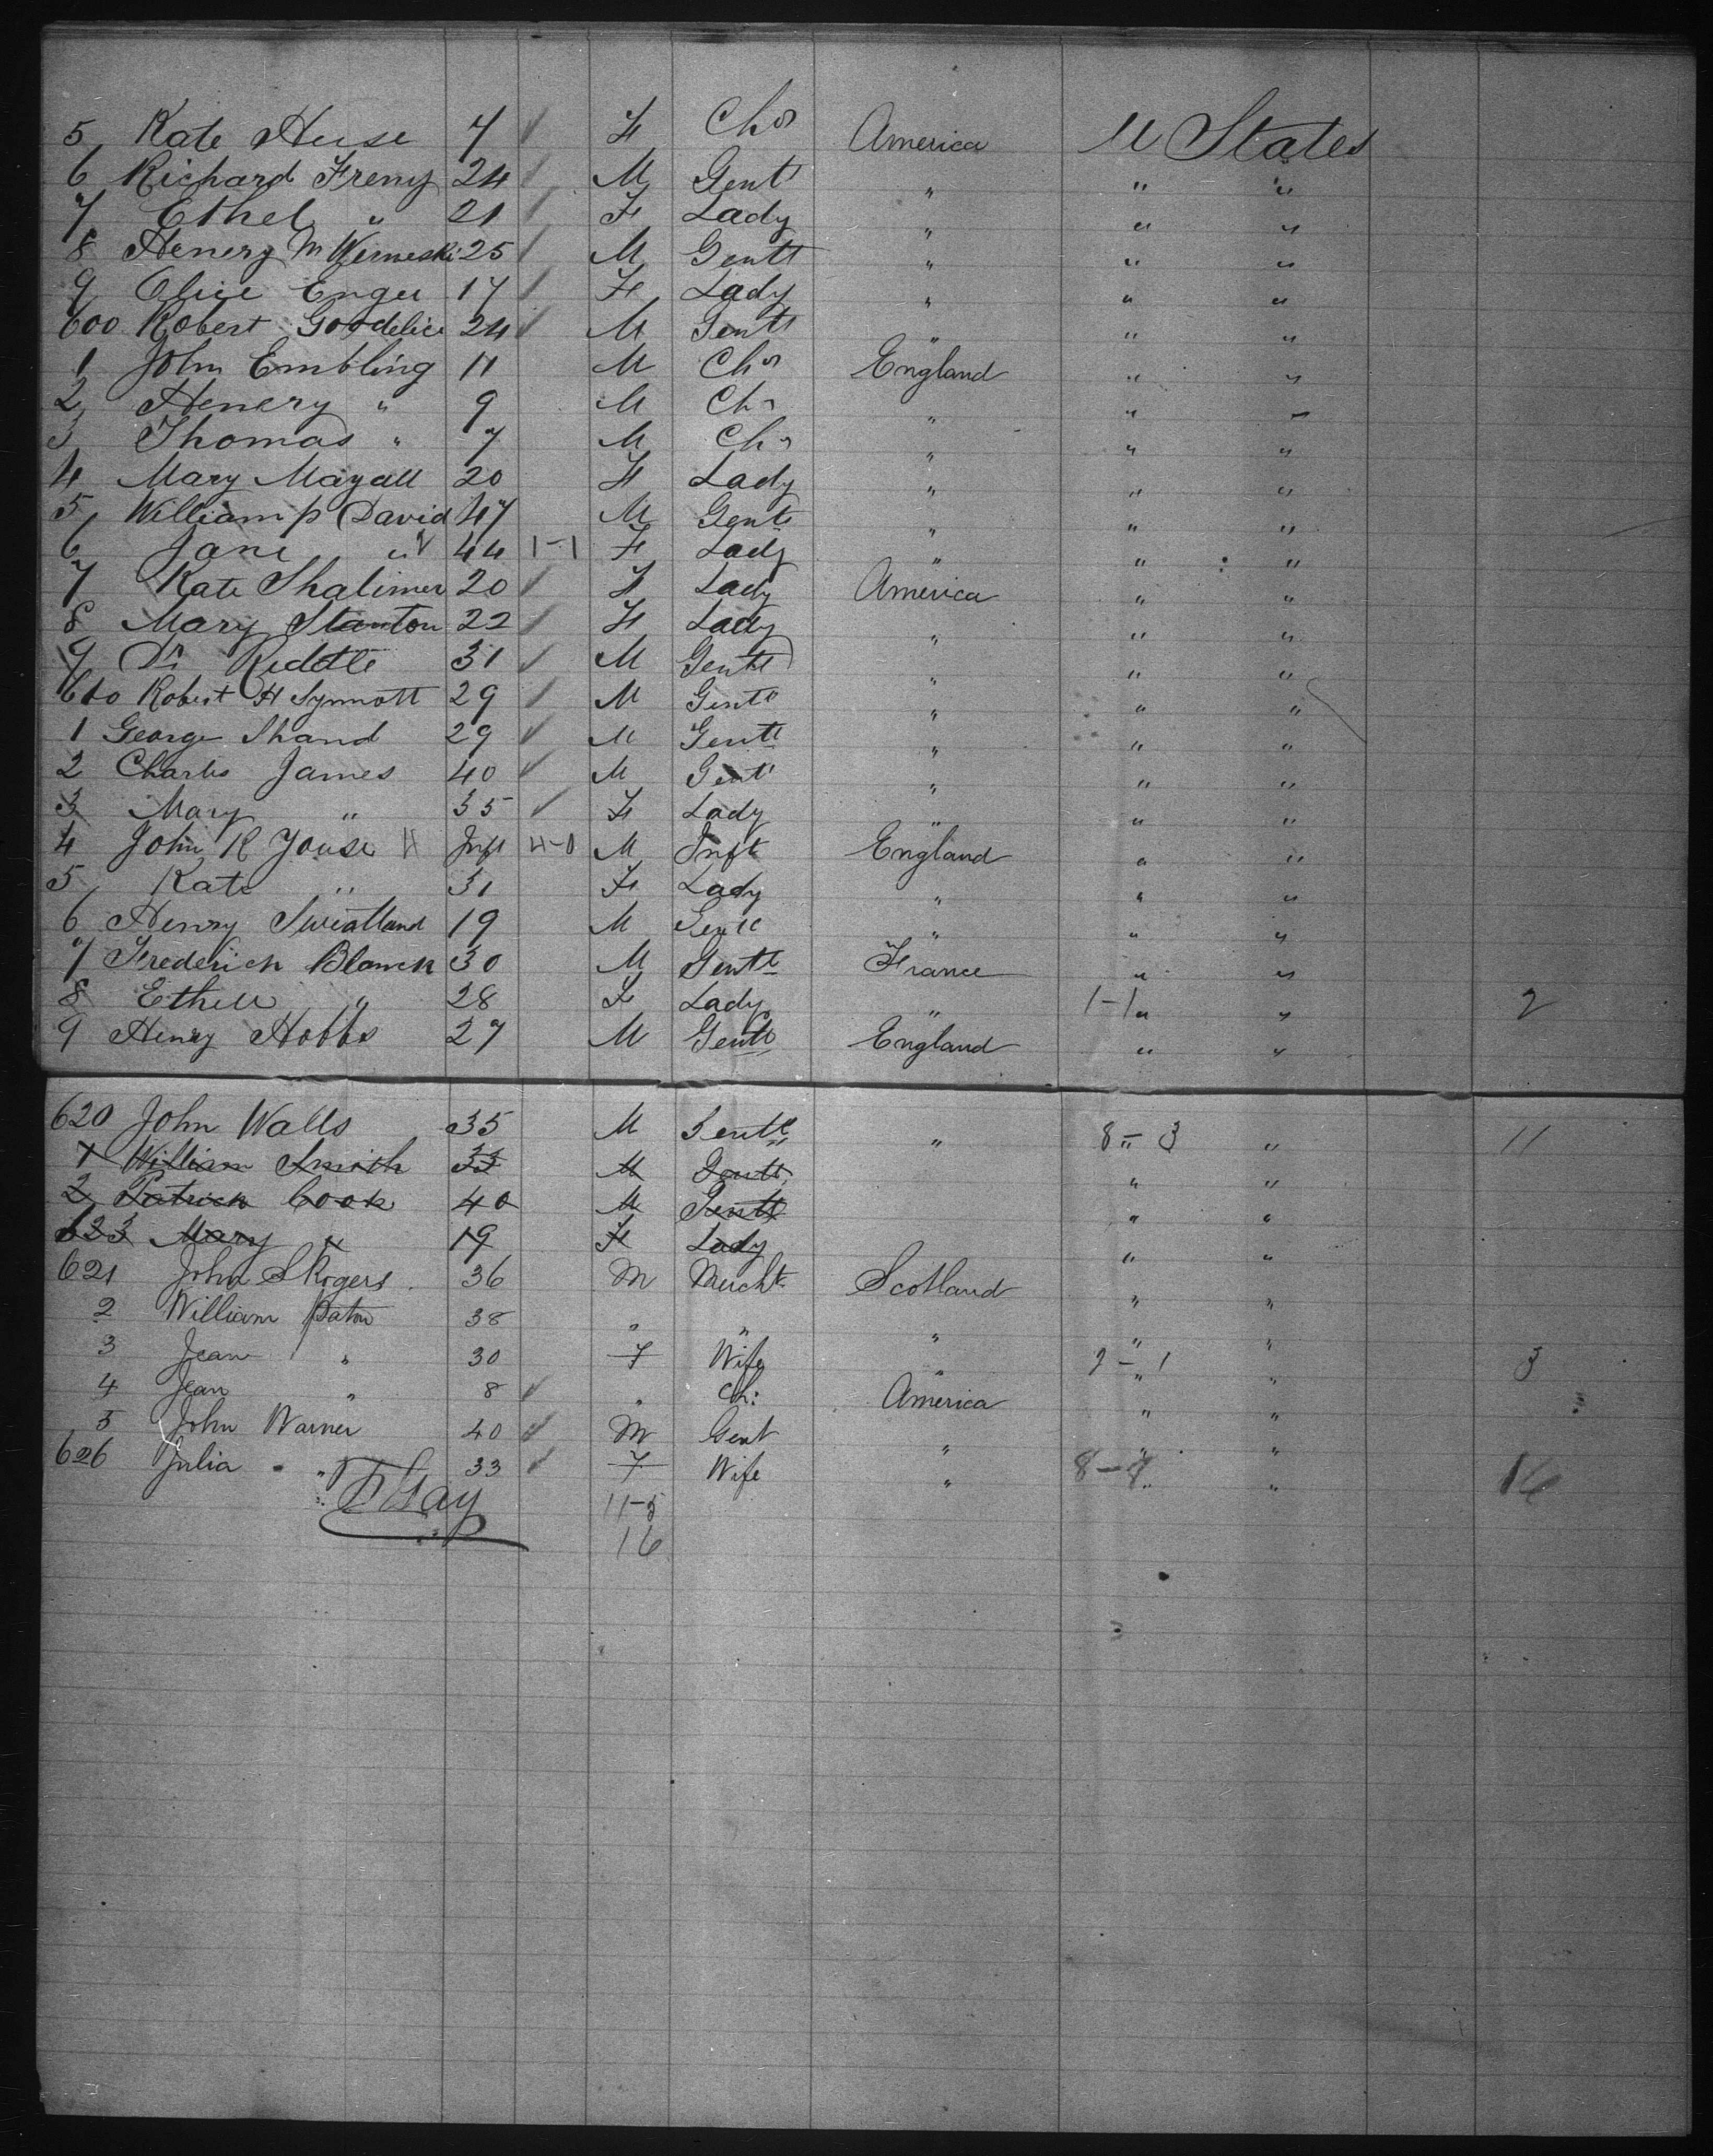 5 Kate Huse 7 ✓ F Chd America U States
6 Richard Freny 24 ✓ M Gentl " " "
7 Ethel " 21 ✓ F Lady " " "
8 Henery M Werneski 25 ✓ M Gentl " " "
9 Alice Enger 17 ✓ F Lady " " "
600 Robert Goodelice 24 ✓ M Gentl " " "
1 John Embling 11 M Chd England " "
2 Henery " 9 M Chd " " "
3 Thomas " 7 M Chd " " "
4 Mary Mayall 20 F Lady " " "
5 William p David 47 M Gentl " " "
6 Jane " 44 1-1 F Lady " " "
7 Kate Shalimer 20 ✓ F Lady America " "
8 Mary Stanton 22 ✓ F Lady " " "
9 Dr Riddle 31 ✓ M Gentl " " "
610 Robert H Synnott 29 ✓ M Gentl " " "
1 George Shand 29 ✓ M Gentl " " "
2 Charles James 40 ✓ M Gentl " " "
3 Mary " 35 ✓ F Lady " " "
4 John R Jouse Inft 4-0 M Inft England " "
5 Kate " 31 F Lady " " "
6 Henry Swiatland 19 M Gentl " " "
7 Frederich Blanck 30 M Gentl France " "
8 Ethell " 28 F Lady " 1-1 " " 2
9 Henry Hobbs 27 M Gentl England " "
620 John Walls 35 M Gentl " 8-3 " " 11
1 William Smith 33 M Gentl " "
2 Patrick Cook 40 M Gentl " "
623 Mary " 19 F Lady " "
621 John S Rogers 36 M Mercht Scotland " "
2 William Paton 38 " " " " "
3 Jean " 30 F Wife " 2-1 " " 3
4 Jean " 8 ✓ " Ch: America " "
5 John Warner 40 ✓ M Gent " " "
626 Julia " 33 ✓ F Wife " 8-8 " " 16
Gay 11-5
16